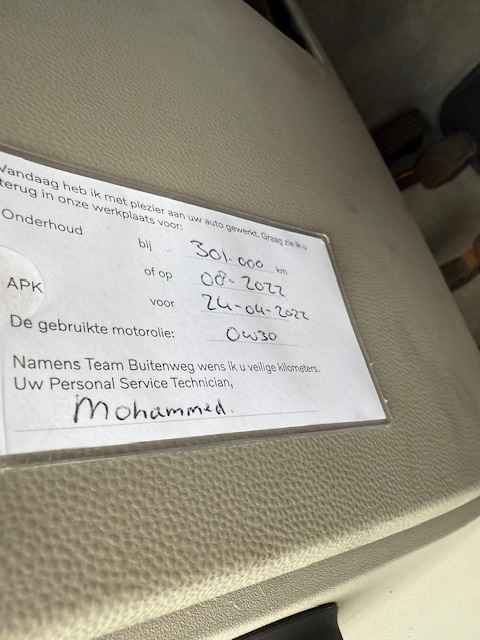 Vandaag heb ik met plezier aan uw auto gewerkt. Graag zie ik u
terug in onze werkplaats voor:
Onderhoud bij 301.000 km
of op 08-2022
APK voor 24-04-2022
De gebruikte motorolie: 0W30
Namens Team Buitenweg wens ik u veilige kilometers.
Uw Personal Service Technician,
Mohammed.